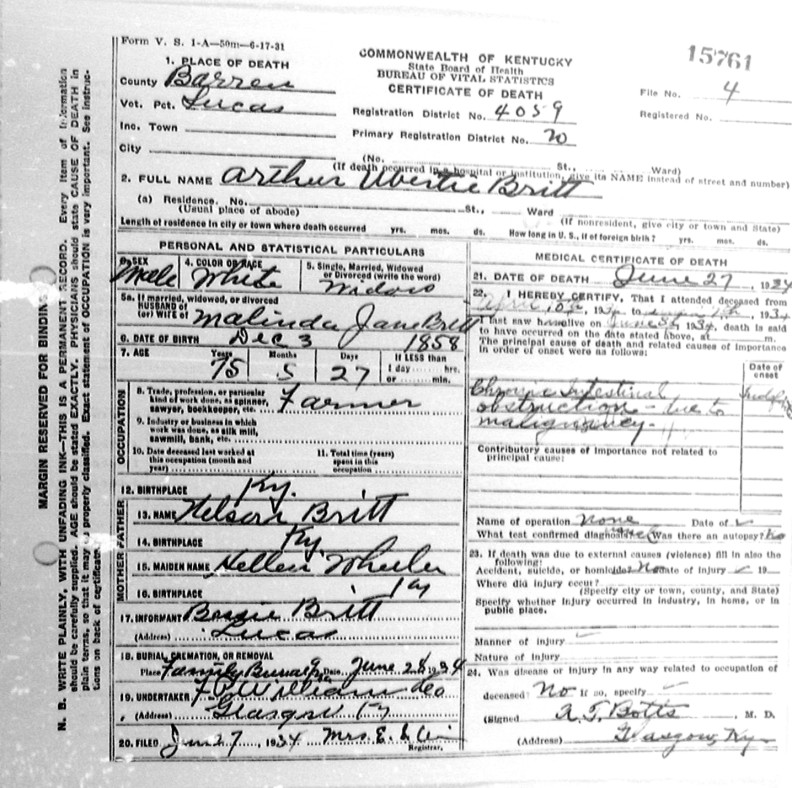 Form V. S. 1-A—50m—6-17-31
15761
COMMONWEALTH OF KENTUCKY
State Board of Health
BUREAU OF VITAL STATISTICS
CERTIFICATE OF DEATH
File No. 4
Registered No.
Registration District No. 4059
Primary Registration District No. 20
1. PLACE OF DEATH
County Barren
Vot. Pct. Lucas
Inc. Town
City (No. St., Ward)
(If death occurred in a hospital or institution, give its NAME instead of street and number)
2. FULL NAME Arthur Britt
(a) Residence. No. St., Ward
(Usual place of abode) (If nonresident, give city or town and State)
Length of residence in city or town where death occurred yrs. mos. ds. How long in U. S., if of foreign birth? yrs. mos. ds.
PERSONAL AND STATISTICAL PARTICULARS
3. SEX Male 4. COLOR OR RACE White 5. Single, Married, Widowed or Divorced (write the word) Widow
5a. If married, widowed, or divorced
HUSBAND of
(or) WIFE of Malinda Jane Britt
6. DATE OF BIRTH Dec 3 1858
7. AGE Years 75 Months 5 Days 27 If LESS than
1 day hrs.
or min.
OCCUPATION
8. Trade, profession, or particular
kind of work done, as spinner,
sawyer, bookkeeper, etc. Farmer
9. Industry or business in which
work was done, as silk mill,
sawmill, bank, etc.
10. Date deceased last worked at
this occupation (month and
year)
11. Total time (years)
spent in this
occupation
12. BIRTHPLACE Ky.
FATHER
13. NAME Nelson Britt
14. BIRTHPLACE Ky
MOTHER
15. MAIDEN NAME Hellen Wheeler
16. BIRTHPLACE Ky
17. INFORMANT Bessie Britt
(Address) Lucas
18. BURIAL, CREMATION, OR REMOVAL
Place Family Date June 28 1934
19. UNDERTAKER
(Address) Glasgow Ky
20. FILED Jun 27, 1934 Mrs. E.
Registrar.
MEDICAL CERTIFICATE OF DEATH
21. DATE OF DEATH June 27, 1934
22. I HEREBY CERTIFY, That I attended deceased from
193 to 1934
I last saw h alive on June 1934, death is said
to have occurred on the date stated above, at m.
The principal cause of death and related causes of importance
in order of onset were as follows:
Date of
onset
Chronic Intestinal
obstruction - due to
malignancy -
Contributory causes of importance not related to
principal cause:
Name of operation none Date of
What test confirmed diagnosis? Was there an autopsy? No
23. If death was due to external causes (violence) fill in also the
following:
Accident, suicide, or homicide? No Date of injury 19
Where did injury occur?
(Specify city or town, county, and State)
Specify whether injury occurred in industry, in home, or in
public place.
Manner of injury
Nature of injury
24. Was disease or injury in any way related to occupation of
deceased? No If so, specify
(Signed R. T. Botts, M. D.
(Address) Glasgow, Ky
MARGIN RESERVED FOR BINDING
N. B. WRITE PLAINLY, WITH UNFADING INK—THIS IS A PERMANENT RECORD. Every item of information
should be carefully supplied. AGE should be stated EXACTLY. PHYSICIANS should state CAUSE OF DEATH in
plain terms, so that it may be properly classified. Exact statement of OCCUPATION is very important. See instruc-
tions on back of certificate.